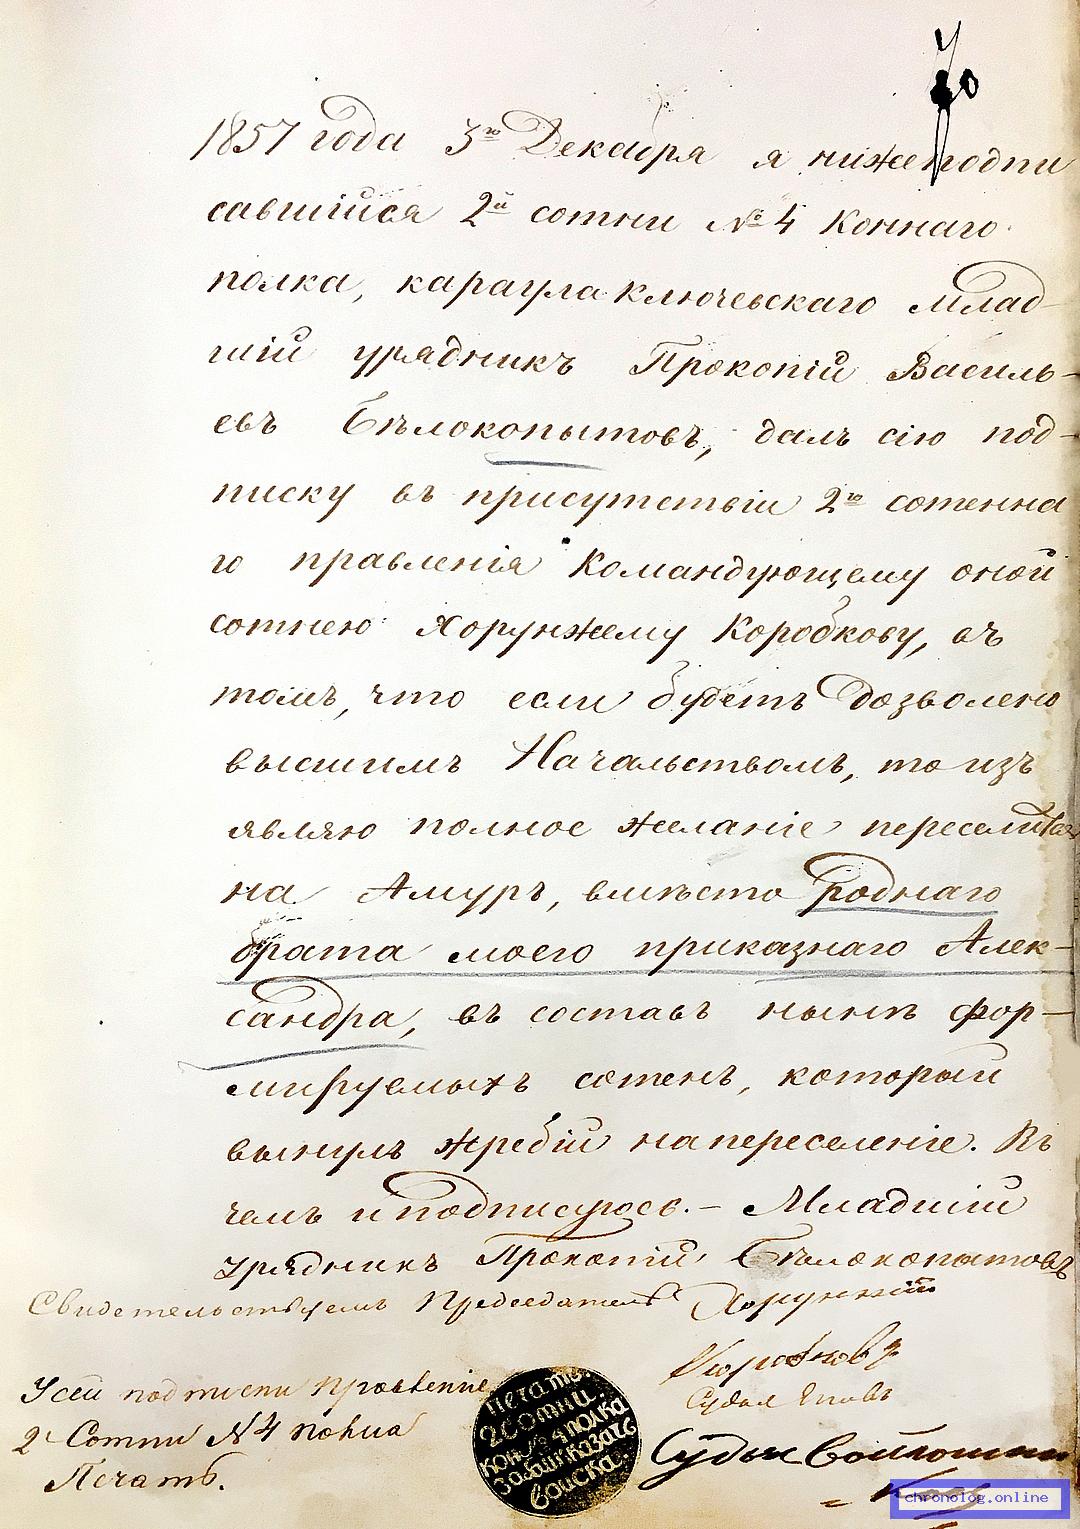 70
1857 года 3го Декабря я нижеподпи
савшийся 2й сотни №4 Коннаго
полка, караула Ключевскаго млад-
шій урядникъ Прокопій Василь-
евъ Бѣлокопытовъ, далъ сію под-
писку въ присутствіи 2го сотенна
го правленія Командующему оной
сотнею Хорунжему Коробкову, въ
томъ, что если будетъ дозволено
высшимъ Начальствомъ, то изъ
являю полное желаніе переселится
на Амуръ, вмѣсто роднаго
брата моего приказнаго Алек-
сандра, въ составъ нынѣ фор-
мируемыхъ сотенъ, который
вынулъ жребій на переселеніе. Въ
чемъ и подписуюсь. – Младшій
урядникъ Прокопій Бѣлокопытовъ
Свидетельствуемъ Председатель Хорунжій
Коробковъ
Судья
Усей подписки Правленіе
2й Сотни №4 полка
Печать.
Печать
2 Сотни
кон. № 4 полка
Забайк. казач.
войска
Судья
chronolog.online